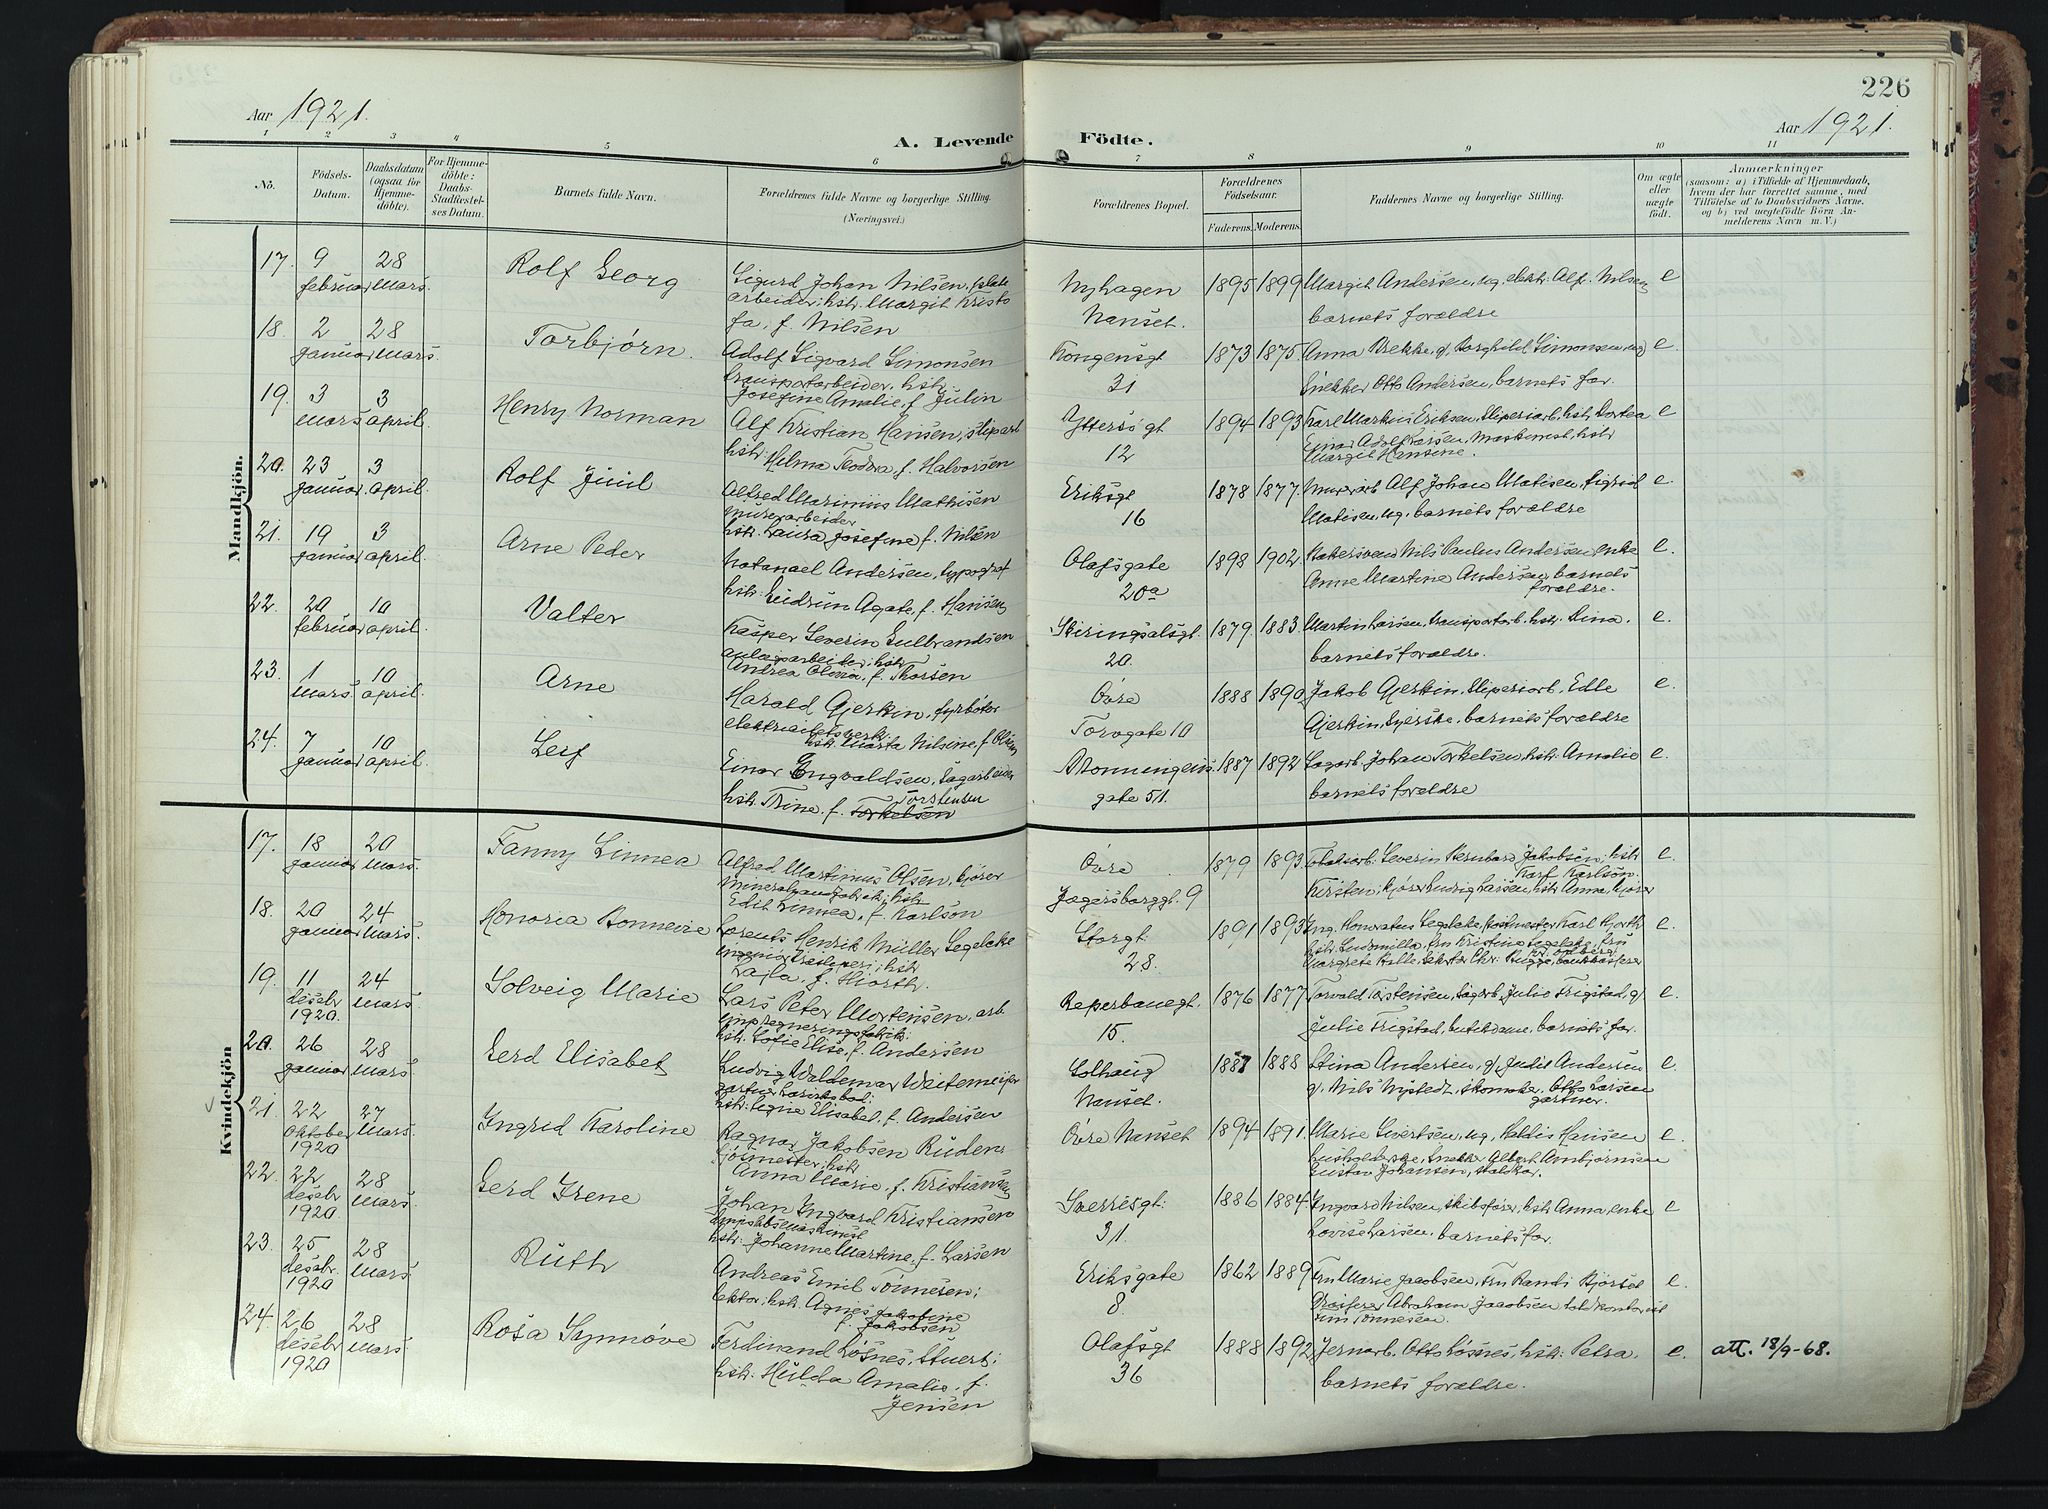 226
Aar 1921.
Aar 1921.
A. Levende Födte.
1 2 3 4 5 6 7 8 9 10 11
No.
Födsels-Datum.
Daabsdatum (ogsaa for Hjemme-döbte).
For Hjemme-döbte: Daabs-Stadfæstel-ses Datum.
Barnets fulde Navn.
Forældrenes fulde Navne og borgerlige Stilling.
(Næringsvei.)
Forældrenes Bopæl.
Forældrenes Födselsaar.
Faderens. Moderens.
Faddernes Navne og borgerlige Stilling.
Om ægte eller uægte födt.
Anmærkninger
(saasom: a) i Tilfælde af Hjemmedaab, hvem der har forrettet samme, med Tilföielse af to Daabsvidners Navne, og b) ved uægtefödte Börn An-melderens Navn m. V.)
Mandkjön.
17. 9 februar 28 Mars. Rolf Georg
Sigurd Johan Nilsen, plate
arbeider; hstr. Margit Kristo
fa, f. Nilsen
Nyhagen Nanset. 1895 1899
Margit Andersen, ug, elektr. Alf. Nilsen,
barnets forældre
e
18. 2 januar 28 Mars. Torbjørn.
Adolf Sigvard Simonsen
transportarbeider, hstr.
Josefine Amalie, f. Julin
Kongensgt 31 1873 1875.
Anna Brekke, g, Borghild Simonsen, ug
Snekker Otto Andersen, barnets far.
e.
19. 3 Mars 3 april. Henry Norman
Alf Kristian Hansen, sliparb
hstr. Hilma Teodora, f. Halvorsen
Yttersøgt 12 1894 1893
Karl Markus Eriksen, Sliperiarb, hstr Dortea
Einar Adolf Larsen, Maskinist, hstr
Margit Hansine.
e
20. 23 januar 3 april. Rolf Juul
Alfred Marinius Mathisen
murerarbeider
hstr. Laura Josefine f. Nilsen
Eriksgt 16 1878 1877.
Murerarb Alf Johan Matisen, Sigrid
Matisen, ug. barnets forældre
e.
21. 19 januar 3 april. Arne Peder
Natanael Andersen, typograf
hstr. Gudrun Agate, f. Hansen
Olafsgate 20a 1898 1902.
Bakersvend Nils Paulus Andersen, enke
Anne Martine Andersen, barnets
forældre.
e.
22. 20 februar 10 april. Valter
Kasper Severin Gulbrandsen
anlægsarbeider; hstr
Andrea Olova, f. Thorsen
Skiringsalsgt. 20. 1879 1883.
Martin Larsen, transportarb. hstr. Dina.
barnets forældre.
e.
23. 1 Mars 10 april. Arne
Harald Gjerkin, fyrbøter
elektricitetsverk.
hstr. Marta Nilsine, f. Olsen
Øvre Torvgate 10 1888 1890
Jakob Gjerkin, Sliperiarb, Edle
Gjerkin, syerske, barnets forældre
e.
24. 7 januar 10 april. Leif
Einar Engvaldsen, Sagarbeider
hstr. Trine, f. Torkelsen Torstensen
Dronningens. gate 51. 1887 1892
Sagarb. Johan Torkelsen, hstr. Amalie
barnets forældre
e.
Kvindekjön
17. 18 januar 20 Mars. Fanny Linnea
Alfred Martinus Olsen, kjører
Mineralvandfabrik; hstr
Edit Linnea, f. Karlson
Øvre Jegersborggt. 9 1879 1893.
Severin Bernhard Jakobsen, hstr
Karl Karlson.
Kirsten; kjører Ludvig Larsen, hstr Anna, kjører
e.
18. 20 januar 24 Mars. Honoria Bonnevie
Lorents Henrik Müller Segelcke
ingeniør træsliperi; hstr
Laila, f. Hiorth.
Storgt. 28. 1891 1893
Ing. Honoratus Segelcke, Postmester Karl Hjorth
hstr. Ludmilla, fru Kristine Segelcke, fru
Margrete Bille, sekretær Chr. Bugge, bankkasserer
e.
19. 11 desebr 1920. 24 Mars. Solveig Marie
Lars Peter Mortensen, arb.
impregneringsfabrik.
hstr. Sofie Elise, f. Andersen
Reperbanegt. 15. 1876 1877
Torvald Torstensen, Sagarb, Julie Frigstad, g
Julie Frigstad, butikdame, barnets far.
e.
20. 26 januar 28 Mars. Gerd Elisabet
Ludvig Waldemar Waitemeijer
gartner Larviks bad;
hstr. Signe Elisabet, f. Andersen
Solhaug Nanset. 1887 1888
Stina Andersen, g, Judit Andersen
g, Nils Nystedt, skomaker, Otto Larsen
gartner.
e.
21. 22 oktober 1920 27 Mars. Ingrid Karoline
Ragnar Jakobsen Ruden;
hstr
Anna Marie, f. Kristiansen
Øvre Nanset 1894 1891.
Marie Sivertsen, ug, Haldis Hansen
husholderske, Snekker Albert Ambjørnsen
Gustav Johansen, staldkar.
e.
22. 22 desebr 1920. 28 Mars. Gerd Irene
Johan Ingvard Kristiansen
hstr. Johanne Martine, f. Larsen
Sverresgt: 31. 1886 1884.
Ingvard Nilsen, skibsfører, hstr Anna, enke
Lovise Larsen, barnets far.
e
23. 25 desebr. 1920 28 Mars. Ruth
Andreas Emil Tönnesen;
lektor; hstr. Agnes Jakobine
f. Jakobsen
Eriksgate 8. 1862 1889
Fru Marie Jacobsen, Fru Randi Bjørset
Abraham Jacobsen toldkontorist
Tönnesen.
e.
24. 26 desebr 1920 28 Mars. Rosa Synnøve
Ferdinand Løsnes, Stuert;
hstr. Hulda Amalie, f.
Jensen
Olafsgt 36 1888 1892
Jernarb. Otto Løsnes, hstr. Petra.
barnets forældre.
e. att. 18/9-68.